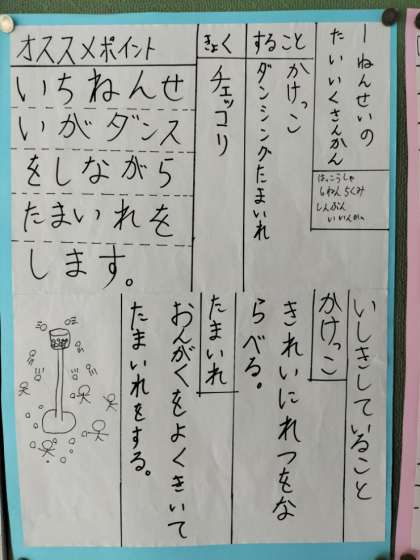 一ねんせいの
たいいくさんかん
はっこうしゃ
しんぶん
いいんかい
すること
かけっこ
ダンシングたまいれ
きょく
チェッコリ
オススメポイント
いちねんせ
いがダンス
をしながら
たまいれを
します。
いしきしていること
かけっこ
きれいにれつをな
らべる。
たまいれ
おんがくをよくきいて
たまいれをする。